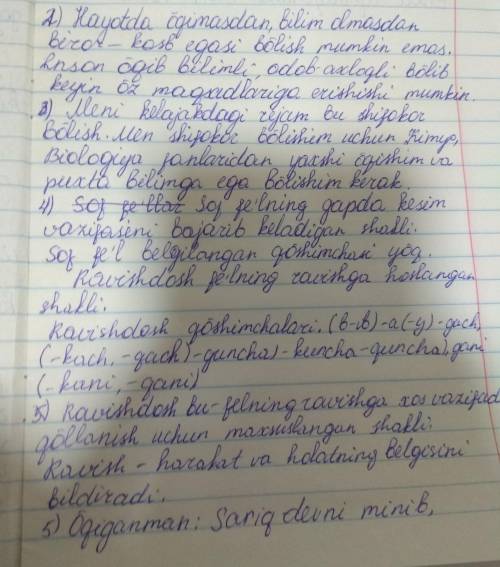 2) Hayotda ögimasdan, bilim olmasdan
biror-kasb egasi bölish mumkin emas.
Inson ögib bilimli, odob-axloqli bölib
keyin öz maqsadlariga erishishi mumkin.
3) Meni kelajakdagi rejam bu shifokor
bölish. Men shifokor bölishim uchun Kimyo,
Biologiya fanlaridan yaxshi öqishim va
puxta bilimga ega bölishim kerak.
4) Sof fe'llar Sof fe'lning gapda kesim
vazifasini bajarib keladigan shakli.
Sof fe'l belgilangan qöshimchasi yöq.
Ravishdosh fe'lning ravishga hoslangan
shakli.
Ravishdosh qöshimchalari. (b-ib)-a(-y)-gach,
(-kach, -qach)-guncha)-kuncha-quncha), gani
(-kani, -qani)
5) Ravishdosh bu-felning ravishga xos vazifad
qöllanish uchun maxsuslangan shakli.
Ravish - harakat va holatning belgisini
bildiradi.
5) Öqiganman: Sariq devni minib,